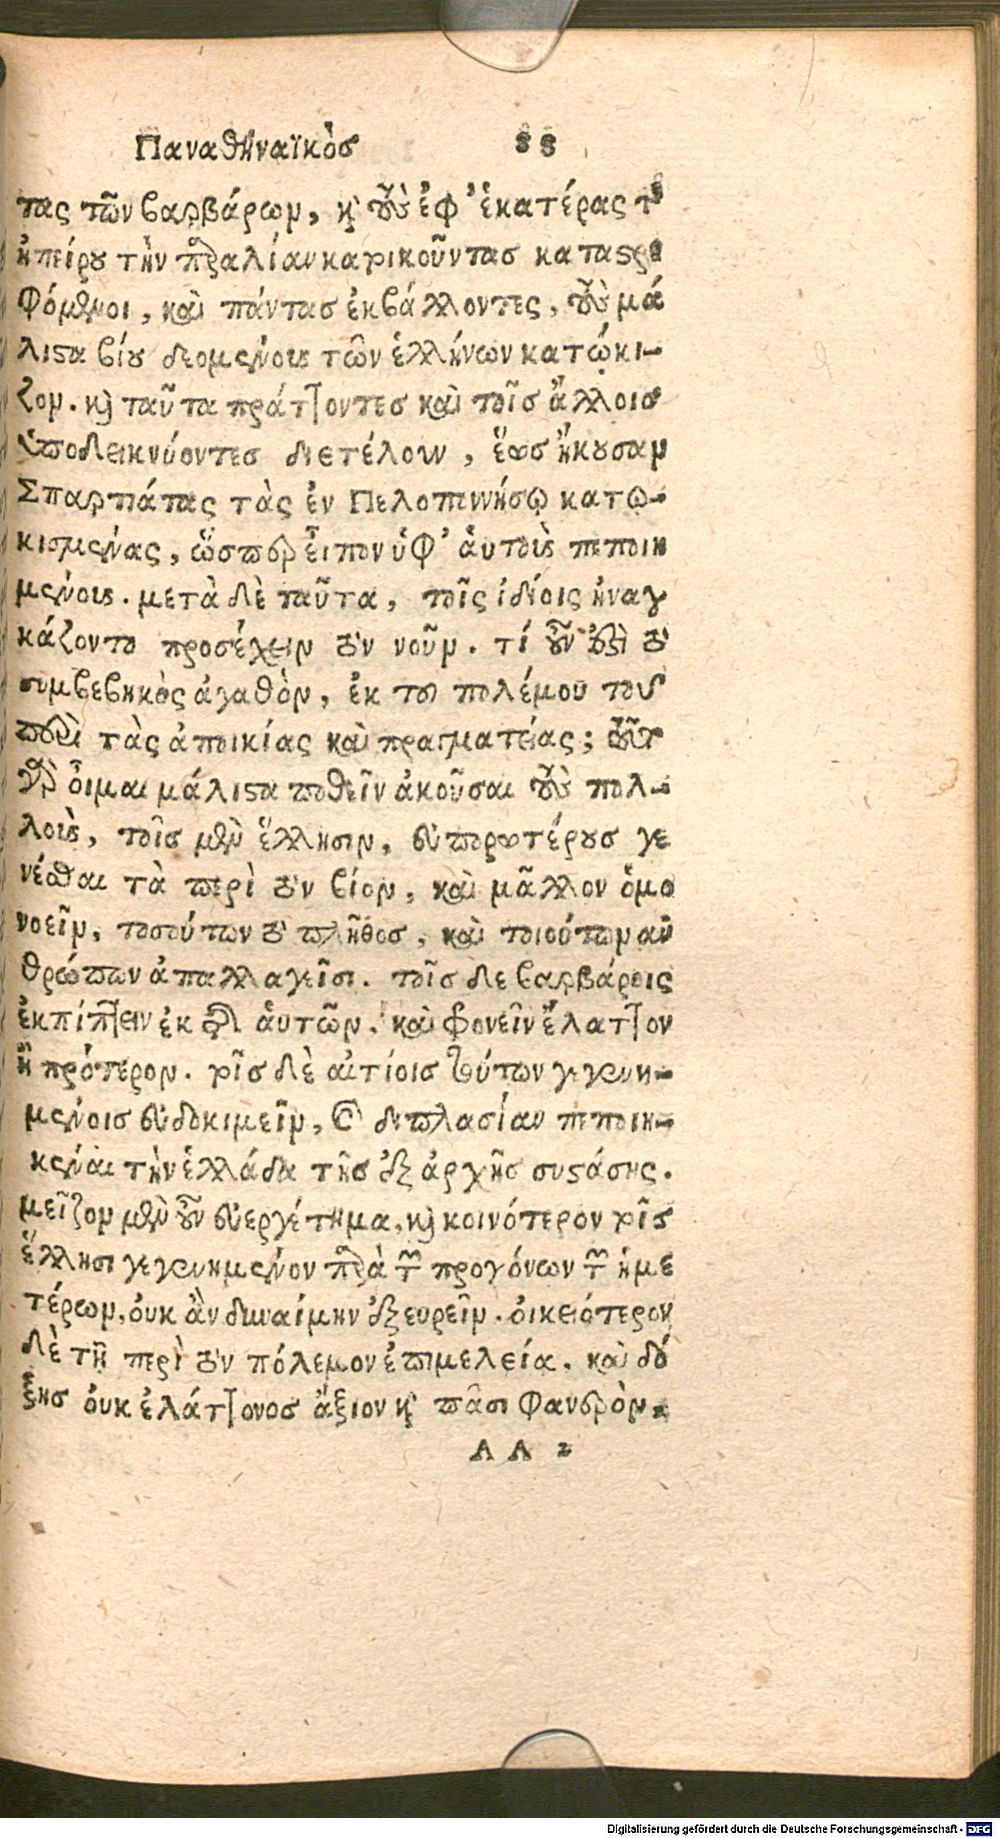 Παναθηναϊκὸσ 88
τας τῶν βαρβάρων, κỳ τοὺσ ἐφ᾽ ἑκατέρας τῆσ
ἠπείρου τὴν παραλίαν κατοικοῦντασ καταστρε
φόμενοι, καὶ πάντασ ἐκβάλλοντες, τοὺσ μά
λιστα βίου δεομένουσ τῶν ἑλλήνων κατώκι-
ζον. καὶ ταῦτα πράττοντεσ καὶ τοῖσ ἄλλοισ
ὑποδεικνύοντεσ διετέλουν, ἕωσ ἤκουσαν
Σπαρτιάτας τὰς ἐν Πελοποννήσῳ κατῳ-
κισμένας, ὥσπερ εἶπον ὑφ᾽ ἁυτοῖσ πεποιη
μένουσ. μετὰ δὲ ταῦτα, τοῖς ἰδίοις ἠναγ
κάζοντο προσέχειν τὸν νοῦν. τί οὖν ἐστὶ τὸ
συμβεβηκὸς ἀγαθὸν, ἐκ τοῦ πολέμου τοῦ
περὶ τὰς ἀποικίας καὶ πραγματείας; τοῦτο
γὰρ οἶμαι μάλιστα ποθεῖν ἀκοῦσαι τοὺσ πολ-
λοὺσ, τοῖσ μὲν ἕλλησιν, εὐπορωτέρουσ γε
νέσθαι τὰ περὶ τὸν βίον, καὶ μᾶλλον ὁμο
νοεῖν, τοσούτων τὸ πλῆθοσ, καὶ τοιούτων ἀν
θρώπων ἀπαλλαγεῖσι. τοῖσ δὲ βαρβάροις
ἐκπίπτειν ἐκ τῆσ ἁυτῶν, καὶ φρονεῖν ἔλαττον
ἢ πρότερον. τοῖσ δὲ αἰτίοισ τούτων γεγενη-
μένοισ εὐδοκιμεῖν, καὶ διπλασίαν πεποιη-
κέναι τὴν ἑλλάδα τῆσ ἐξ ἀρχῆσ συστάσης.
μεῖζον μὲν οὖν εὐεργέτημα, καὶ κοινότερον τοῖσ
ἕλλησι γεγενημένον παρὰ τῶν προγόνων τῶν ἡμε
τέρων, ὀυκ ἂν δυναίμην ἐξευρεῖν. ὀικειότερον
δὲ τῇ περὶ τὸν πόλεμον ἐπιμελεία, καὶ δό
ξησ ὀυκ ἐλάττονοσ ἄξιον καὶ πᾶσι φανερὸν,
AA 2
Digitalisierung gefördert durch die Deutsche Forschungsgemeinschaft - DFG